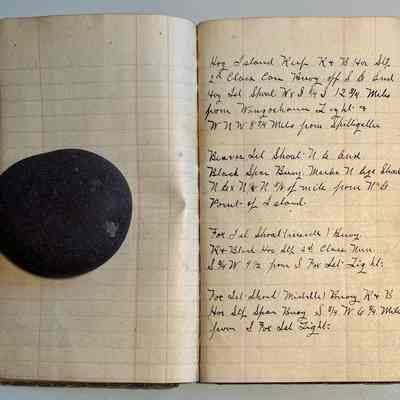 Hog Island Reef R & B Hor Stp
2d Class Can Buoy off S E End
Hog Isl Shoal W x S 3/4 S 12 3/4 Miles
from Waugoshance Light &
W N W 8 3/4 Miles from
Beaver Isl Shoal N E End
Black Spar Buoy. Marks N Edge Shoal
N E x N & N. 7/8 of mile from N E
Point of Island
Fox Isl Shoal (inside) Buoy
R & Black Hor Stp 2d Class Nun
S 3/4 W 4 1/2 from S Fox Isl Light:
Fox Isl Shoal (Middle) Buoy R & B
Hor Stp Spar Buoy S 3/4 W 6 3/4 Miles
from S Fox Isl Light: